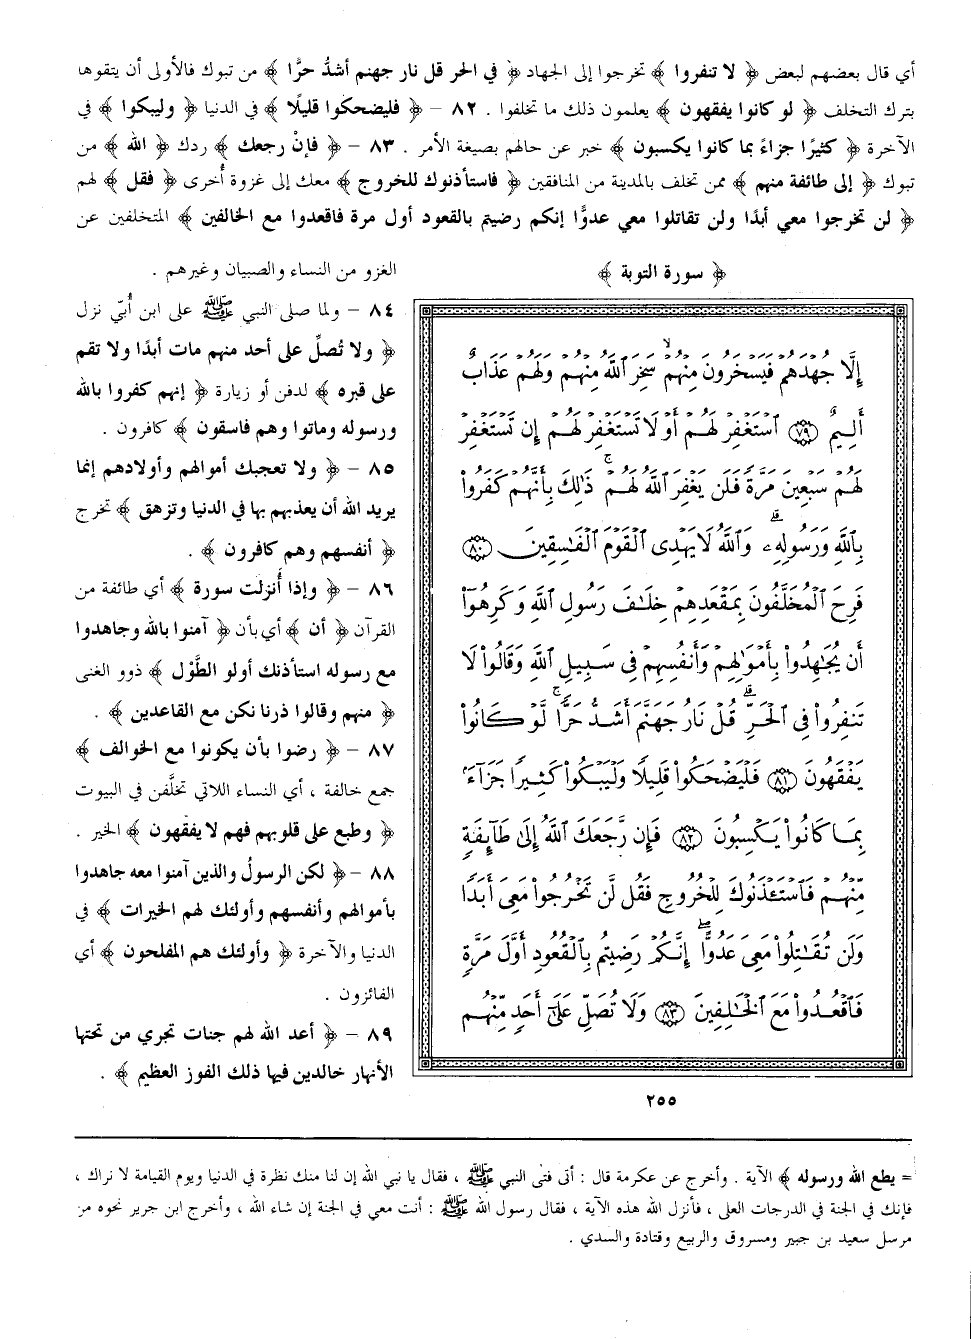 أي قال بعضهم لبعض ﴿ لا تنفروا ﴾ تخرجوا إلى الجهاد ﴿ في الحر قل نار جهنم أشدُّ حرًّا ﴾ من تبوك فالأولى أن يتقوها
بترك التخلف ﴿ لو كانوا يفقهون ﴾ يعلمون ذلك ما تخلفوا . ٨٢ – ﴿ فليضحكوا قليلًا ﴾ في الدنيا ﴿ وليبكوا ﴾ في
الآخرة ﴿ كثيرًا جزاءً بما كانوا يكسبون ﴾ خبر عن حالهم بصيغة الأمر . ٨٣ – ﴿ فإنْ رجعك ﴾ ردك ﴿ الله ﴾ من
تبوك ﴿ إلى طائفة منهم ﴾ ممن تخلف بالمدينة من المنافقين ﴿ فاستأذنوك للخروج ﴾ معك إلى غزوة أُخرى ﴿ فقل ﴾ لهم
﴿ لن تخرجوا معي أبدًا ولن تقاتلوا معي عدوًّا إنكم رضيتم بالقعود أول مرة فاقعدوا مع الخالفين ﴾ المتخلفين عن
الغزو من النساء والصبيان وغيرهم .
٨٤ – ولما صلى النبي ﷺ على ابن أُبيّ نزل
﴿ ولا تُصلِّ على أحد منهم مات أبدًا ولا تقم
على قبره ﴾ لدفن أو زيارة ﴿ إنهم كفروا بالله
ورسوله وماتوا وهم فاسقون ﴾ كافرون .
٨٥ – ﴿ ولا تعجبك أموالهم وأولادهم إنما
يريد الله أن يعذبهم بها في الدنيا وتزهق ﴾ تخرج
﴿ أنفسهم وهم كافرون ﴾ .
٨٦ – ﴿ وإذا أُنزلت سورة ﴾ أي طائفة من
القرآن ﴿ أن ﴾ أي بأن ﴿ آمنوا بالله وجاهدوا
مع رسوله استأذنك أولو الطَّوْل ﴾ ذوو الغنى
﴿ منهم وقالوا ذرنا نكن مع القاعدين ﴾ .
٨٧ – ﴿ رضوا بأن يكونوا مع الخوالف ﴾
جمع خالفة ، أي النساء اللاتي تخلَّفن في البيوت
﴿ وطبع على قلوبهم فهم لا يفقهون ﴾ الخير .
٨٨ –﴿ لكن الرسولُ والذين آمنوا معه جاهدوا
بأموالهم وأنفسهم وأولئك لهم الخيرات ﴾ في
الدنيا والآخرة ﴿ وأولئك هم المفلحون ﴾ أي
الفائزون .
٨٩ – ﴿ أعد الله لهم جنات تجري من تحتها
الأنهار خالدين فيها ذلك الفوز العظيم ﴾ .
﴿ سورة التوبة ﴾
إِلَّا جُهْدَهُمْ فَيَسْخَرُونَ مِنْهُمْ ۙ سَخِرَ ٱللَّهُ مِنْهُمْ وَلَهُمْ عَذَابٌ
أَلِيمٌ ﴿٧٩﴾ ٱسْتَغْفِرْ لَهُمْ أَوْ لَا تَسْتَغْفِرْ لَهُمْ إِن تَسْتَغْفِرْ
لَهُمْ سَبْعِينَ مَرَّةً فَلَن يَغْفِرَ ٱللَّهُ لَهُمْ ۚ ذَٰلِكَ بِأَنَّهُمْ كَفَرُوا۟
بِٱللَّهِ وَرَسُولِهِۦ ۗ وَٱللَّهُ لَا يَهْدِى ٱلْقَوْمَ ٱلْفَـٰسِقِينَ ﴿٨٠﴾
فَرِحَ ٱلْمُخَلَّفُونَ بِمَقْعَدِهِمْ خِلَـٰفَ رَسُولِ ٱللَّهِ وَكَرِهُوٓا۟
أَن يُجَـٰهِدُوا۟ بِأَمْوَٰلِهِمْ وَأَنفُسِهِمْ فِى سَبِيلِ ٱللَّهِ وَقَالُوا۟ لَا
تَنفِرُوا۟ فِى ٱلْحَرِّ ۗ قُلْ نَارُ جَهَنَّمَ أَشَدُّ حَرًّا ۚ لَّوْ كَانُوا۟
يَفْقَهُونَ ﴿٨١﴾ فَلْيَضْحَكُوا۟ قَلِيلًا وَلْيَبْكُوا۟ كَثِيرًا جَزَآءًۢ
بِمَا كَانُوا۟ يَكْسِبُونَ ﴿٨٢﴾ فَإِن رَّجَعَكَ ٱللَّهُ إِلَىٰ طَآئِفَةٍ
مِّنْهُمْ فَٱسْتَـْٔذَنُوكَ لِلْخُرُوجِ فَقُل لَّن تَخْرُجُوا۟ مَعِىَ أَبَدًا
وَلَن تُقَـٰتِلُوا۟ مَعِىَ عَدُوًّا ۖ إِنَّكُمْ رَضِيتُم بِٱلْقُعُودِ أَوَّلَ مَرَّةٍ
فَٱقْعُدُوا۟ مَعَ ٱلْخَـٰلِفِينَ ﴿٨٣﴾ وَلَا تُصَلِّ عَلَىٰٓ أَحَدٍ مِّنْهُم
٢٥٥
= يطع الله ورسوله ﴾ الآية . وأخرج عن عكرمة قال : أتى فتى النبي ﷺ ، فقال يا نبي الله إن لنا منك نظرة في الدنيا ويوم القيامة لا نراك ،
فإنك في الجنة في الدرجات العلى ، فأنزل الله هذه الآية ، فقال رسول الله ﷺ : أنت معي في الجنة إن شاء الله ، وأخرج ابن جرير نحوه من
مرسل سعيد بن جبير ومسروق والربيع وقتادة والسدي .